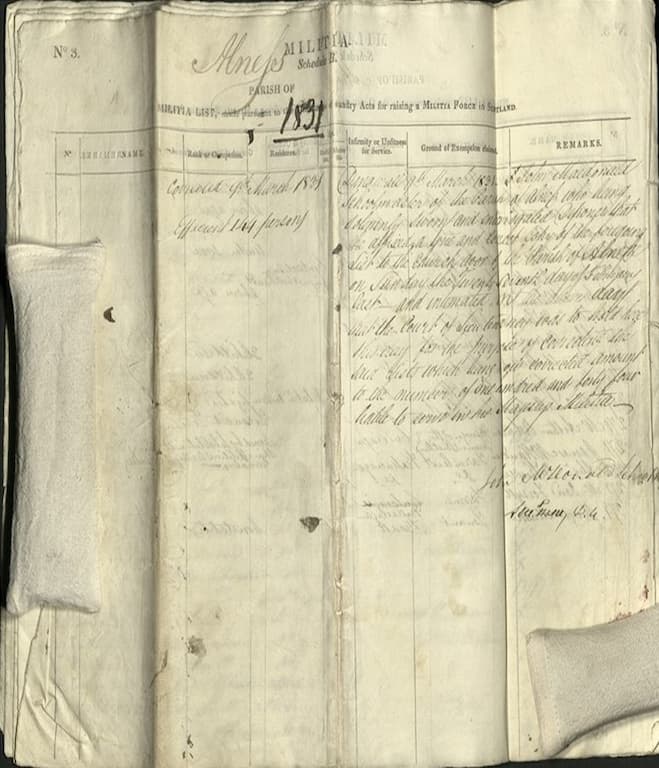 No 3.
Alness
MILITIA
Schedule B.
PARISH OF
1831
MILITIA LIST, made pursuant to the Acts for raising a MILITIA FORCE in SCOTLAND.
No NAME. Rank or Occupation. Residence. Infirmity or Unfitness for Service. Ground of Exemption claimed. REMARKS.
Corrected 9th March 1831
Effective 144 persons
Dingwall 9th March 1831. I John Macdonald
Schoolmaster of the Parish of Alness who being
solemnly sworn and interrogated depones that
he affixed a true and correct Copy of the foregoing
list to the Church door of the Parish of Alness
on Sunday the twenty seventh day of February
last and intimated
that the Court of Lieutenancy was to be held here
this day for the purpose of correcting the
said lists which have
to the number of one hundred and forty four
liable to serve in the Majesty's Militia